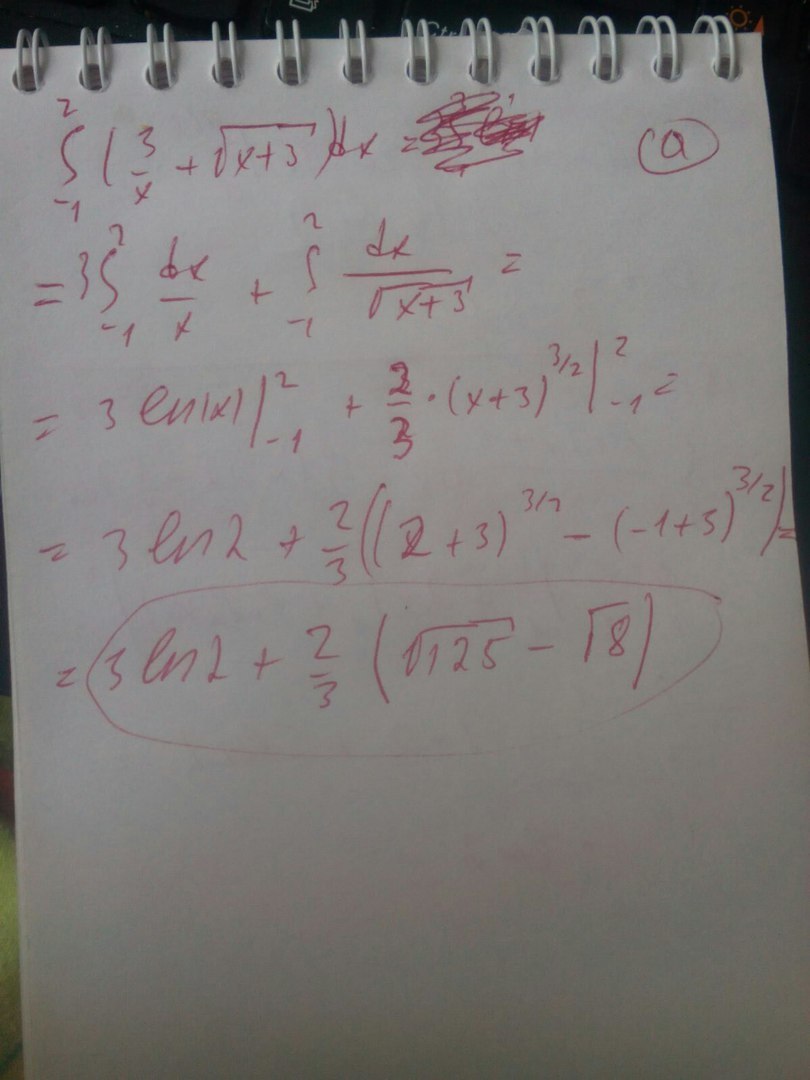 ∫_{-1}^{2} (3/x + √(x+3)) dx = (a)
= 3∫_{-1}^{2} dx/x + ∫_{-1}^{2} dx/√(x+3) =
= 3 ln|x| |_{-1}^{2} + 2/3 · (x+3)^{3/2} |_{-1}^{2} =
= 3 ln2 + 2/3 ((2+3)^{3/2} - (-1+3)^{3/2}) =
= 3 ln2 + 2/3 (√125 - √8)